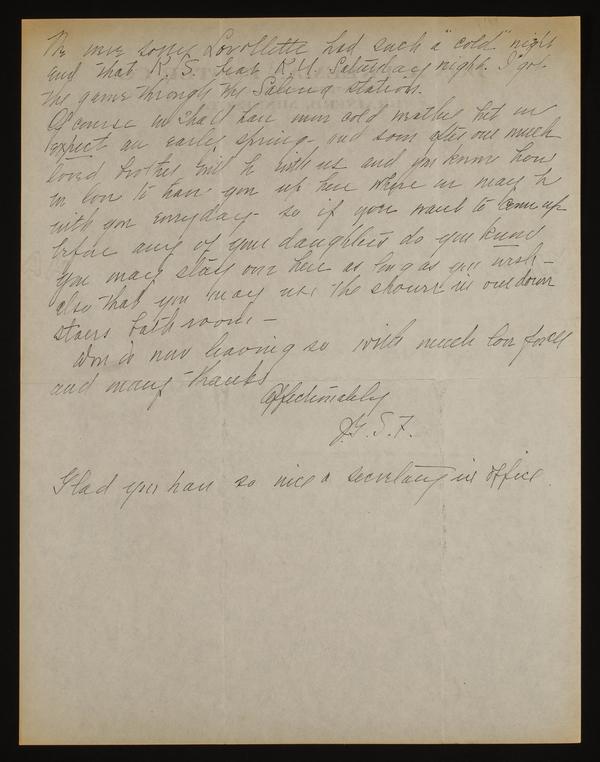 We were sorry Lovellette had such a "cold" night
and that K. S. beat K. U. Saturday night. I got
the game through the Salina station.
Of course we shall have more cold weather but we
expect an early spring - and soon after our much
loved brother will be with us and you know how
we love to have you up here where we may be
with you everyday - so if you want to come up
before any of your daughters do you know
you may stay over here as long as you wish -
also that you may use the shower in our down
stairs bath room -
Don is now leaving so with much love for all
and many thanks
Affectionately
J. G. S. F.
Glad you have so nice a secretary in office.